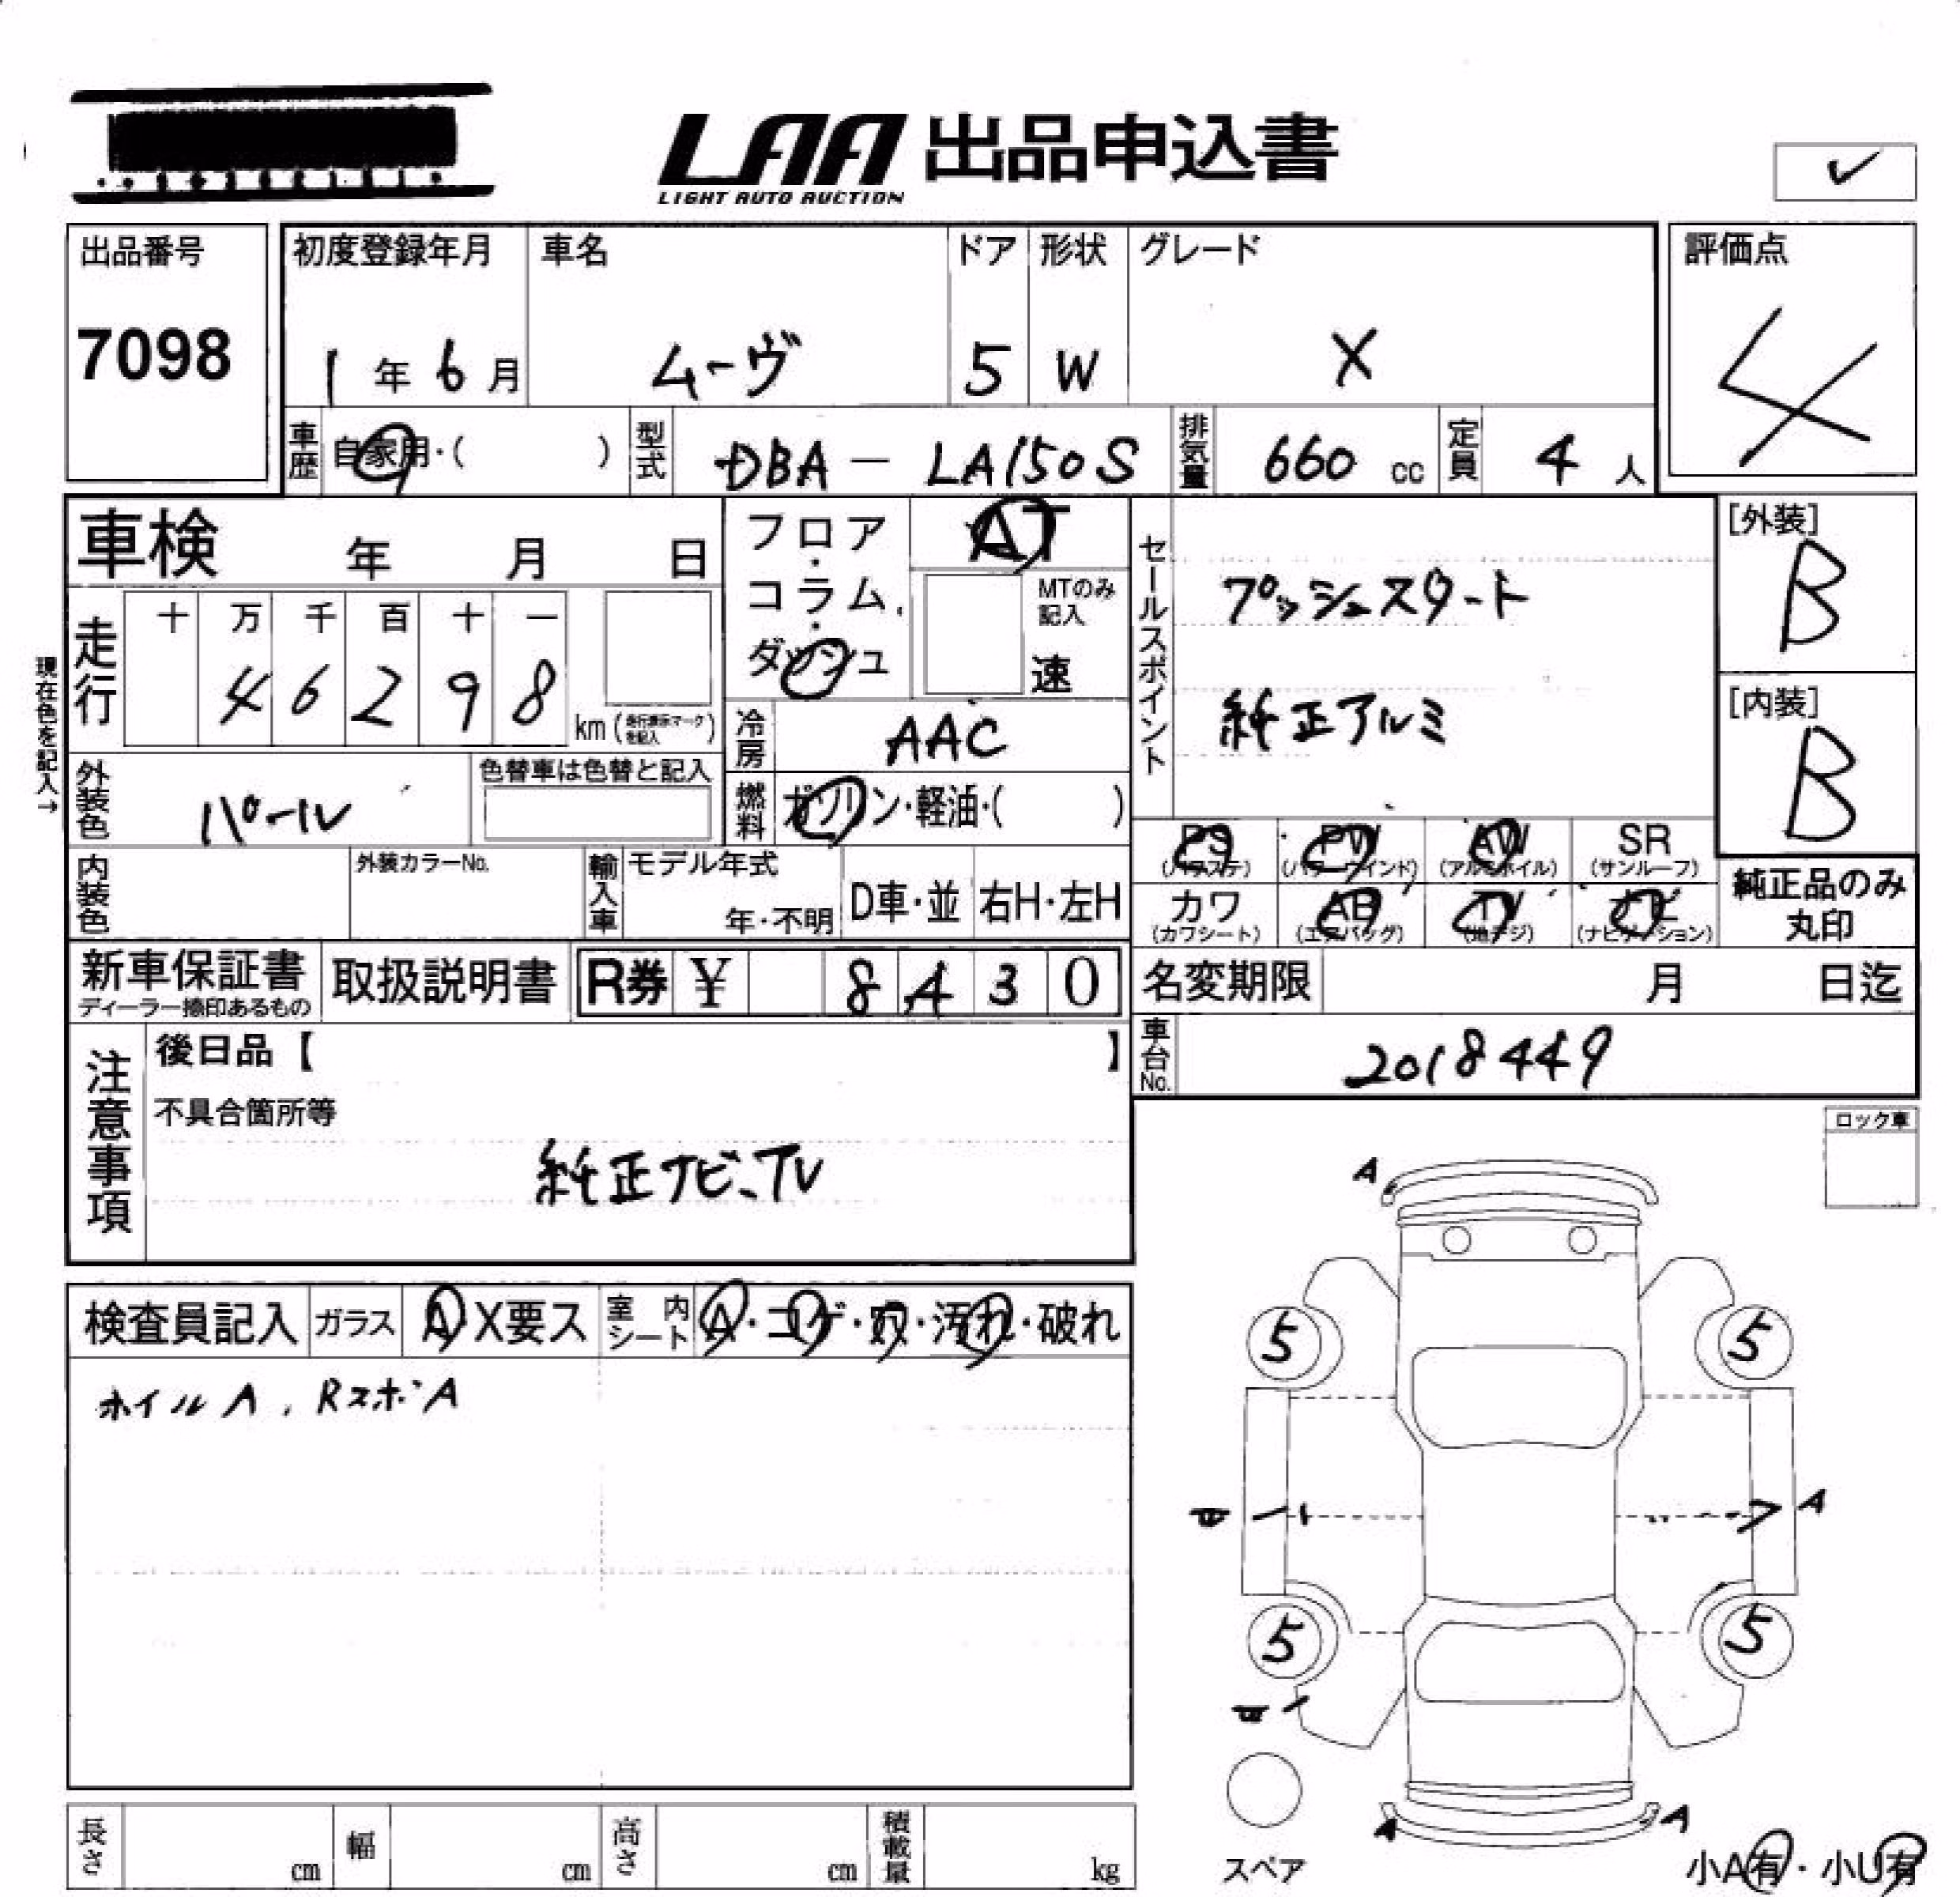 LAA 出品申込書
LIGHT AUTO AUCTION
出品番号
7098
初度登録年月
1年6月
車名
ムーヴ
ドア
5
形状
W
グレード
X
評価点
4
車歴 自家用・( )
型式 DBA - LA150S
排気量 660 cc
定員 4 人
車検 年 月 日
現在色を記入→
走行
十 万 千 百 十 一
4 6 2 9 8
km (走行表示マークを記入)
フロア・コラム・ダッシュ
AT
MTのみ記入
速
冷房 AAC
燃料 ガソリン・軽油・( )
セールスポイント
プッシュスタート
純正アルミ
[外装]
B
[内装]
B
外装色 パール
色替車は色替と記入
内装色
外装カラーNo.
輸入車
モデル年式
年・不明
D車・並
右H・左H
PS (パワステ)
PW (パワーウインド)
AW (アルミホイル)
SR (サンルーフ)
カワ (カワシート)
AB (エアバッグ)
TV (地デジ)
ナビ (ナビゲーション)
純正品のみ丸印
新車保証書
ディーラー捺印あるもの
取扱説明書
R券 ¥ 8430
名変期限 月 日迄
車台No. 2018449
注意事項
後日品【 】
不具合箇所等
純正ナビ、TV
ロック車
検査員記入
ガラス A X要ス
室内シート A・コゲ・穴・汚れ・破れ
ホイルA、RスポA
A
5 5
A
5 5
A A
スペア
小A有・小U有
長さ cm
幅 cm
高さ cm
積載量 kg